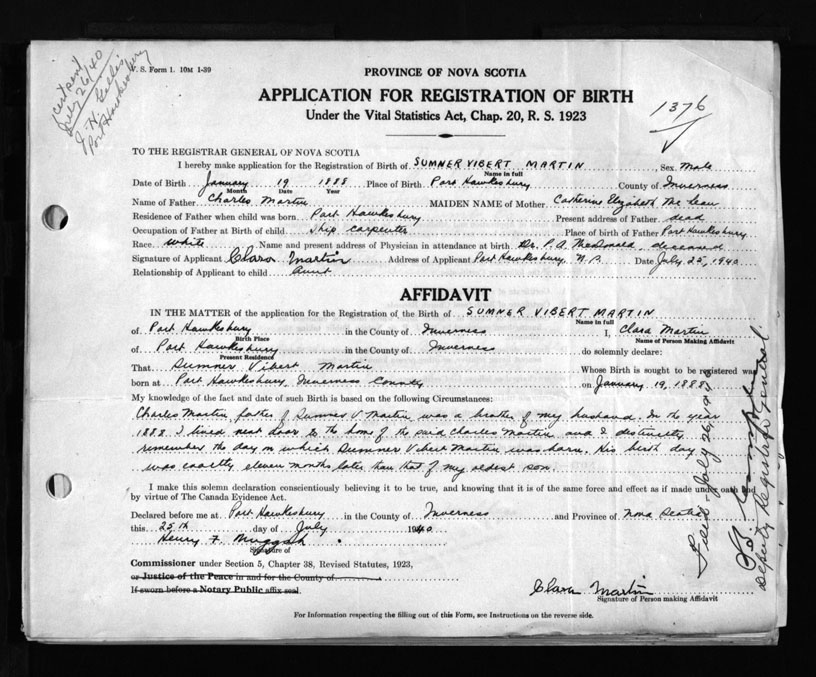 V. S. Form 1. 10M 1-39
Cert sent
July 26/40
J. H. Gillis
Port Hawkesbury
PROVINCE OF NOVA SCOTIA
APPLICATION FOR REGISTRATION OF BIRTH
1376
Under the Vital Statistics Act, Chap. 20, R. S. 1923
TO THE REGISTRAR GENERAL OF NOVA SCOTIA
I hereby make application for the Registration of Birth of SUMNER VIBERT MARTIN, Sex Male
Name in full
Date of Birth January 19 1888 Place of Birth Port Hawkesbury County of Inverness
Month Date Year
Name of Father Charles Martin MAIDEN NAME of Mother Catherine Elizabeth McLean
Residence of Father when child was born Port Hawkesbury Present address of Father dead
Occupation of Father at Birth of child Ship carpenter Place of birth of Father Port Hawkesbury
Race white Name and present address of Physician in attendance at birth Dr. P. A. McDonald, deceased
Signature of Applicant Clara Martin Address of Applicant Port Hawkesbury, N.S. Date July 25, 1940
Relationship of Applicant to child Aunt
AFFIDAVIT
IN THE MATTER of the application for the Registration of the Birth of SUMNER VIBERT MARTIN
Name in full
of Port Hawkesbury in the County of Inverness I, Clara Martin
Birth Place Name of Person Making Affidavit
of Port Hawkesbury in the County of Inverness do solemnly declare:
Present Residence
That Sumner Vibert Martin Whose Birth is sought to be registered was
born at Port Hawkesbury Inverness County on January 19, 1888
My knowledge of the fact and date of such Birth is based on the following Circumstances:
Charles Martin, father of Sumner V Martin was a brother of my husband. In the year
1888 I lived next door to the home of the said Charles Martin and I distinctly
remember the day on which Sumner Vibert Martin was born. His birth day
was exactly eleven months later than that of my oldest son.
I make this solemn declaration conscientiously believing it to be true, and knowing that it is of the same force and effect as if made under oath and
by virtue of The Canada Evidence Act.
Declared before me at Port Hawkesbury in the County of Inverness and Province of Nova Scotia
this 25th day of July 1940
Henry F. Muggah
Signature of
Commissioner under Section 5, Chapter 38, Revised Statutes, 1923,
or Justice of the Peace in and for the County of
If sworn before a Notary Public affix seal
Clara Martin
Signature of Person making Affidavit
For Information respecting the filling out of this Form, see Instructions on the reverse side.
Filed July 26, 1940
Deputy Registrar General.